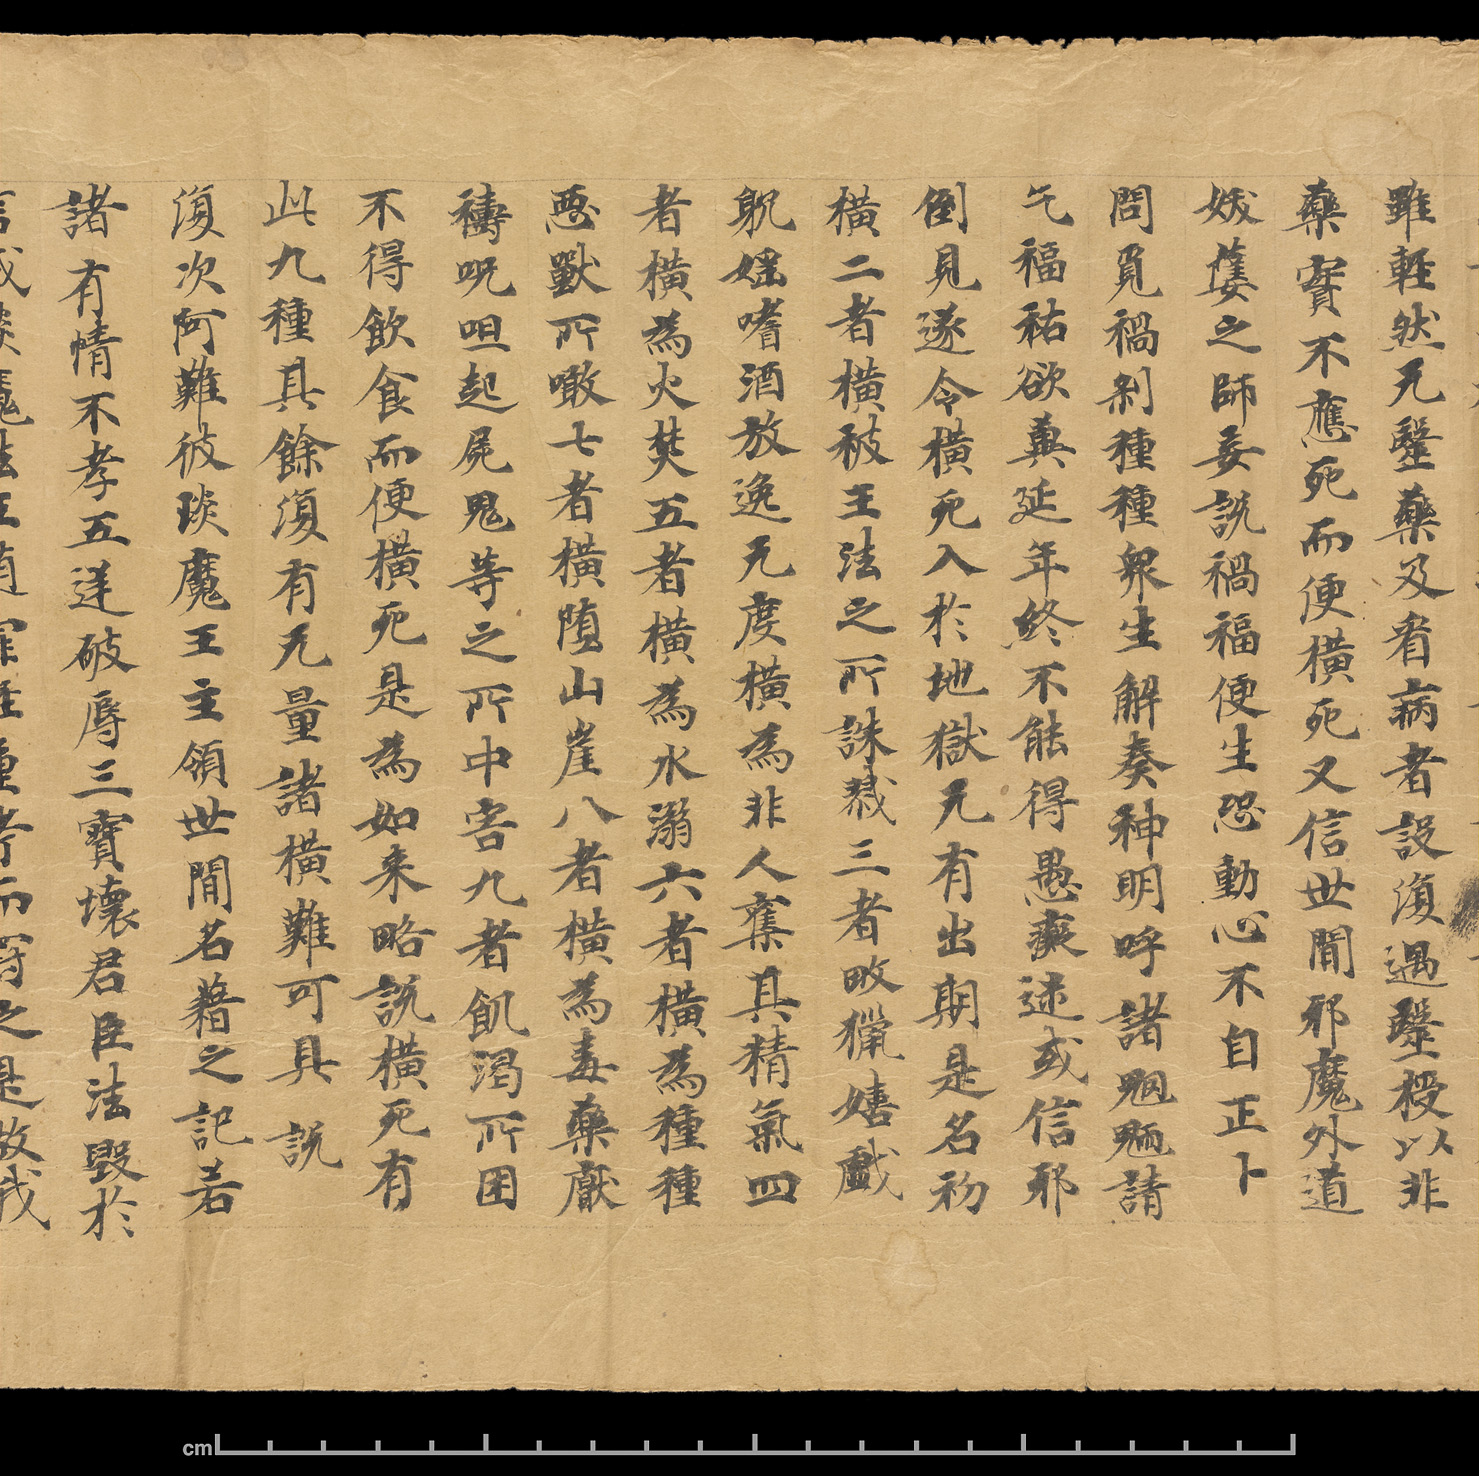 雖軽然无毉藥及㸔病者設復遇毉授以非
藥實不應死而便横死又信世間邪魔外道
妖㜢之師妄説禍福便生恐動心不自正卜
問覔禍剎種種衆生解奏神明呼諸魍魎請
乞福祐欲兾延年終不能得愚癡迷或信邪
倒見遂令横死入於地獄无有出期是名初
横二者横被王法之所誅戮三者畋獵嬉戲
躭婬嗜酒放逸无度横為非人奪其精氣四
者横為火焚五者横為水溺六者横為種種
惡獸所噉七者横墮山崖八者横為毒藥厭
禱呪咀起屍鬼等之所中害九者飢渴所困
不得飲食而便横死是為如来略説横死有
此九種其餘復有无量諸横難可具説
復次阿難彼琰魔王主領世間名藉之記若
諸有情不孝五逆破辱三寶壞君臣法毀於
信戒琰魔法王随罪輕重考而罸之是故我